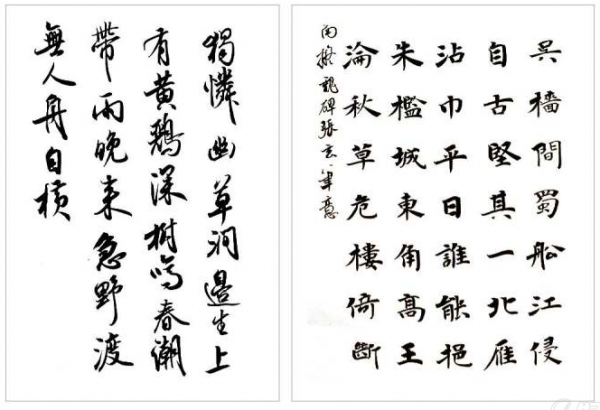 獨憐幽草澗邊生上
有黃鸝深樹鳴春潮
帶雨晚来急野渡
無人舟自橫
吳檣間蜀船江侵
自古堅其一北雁
沾巾平日誰能挹
朱檻城東角高王
淪秋草危樓倚斷
擬魏碑張玄筆意